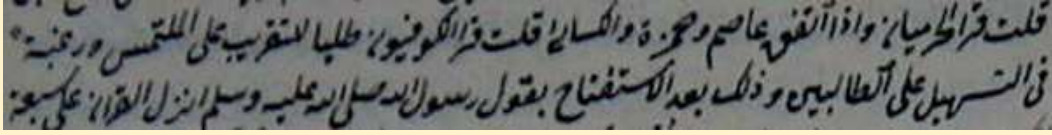 قلت قرا الحرميان واذا اتفق عاصم وحمزة والكسائي قلت قرا الكوفيون طلبا للتقريب على الملتمس ورغبة
في التسهيل على الطالبين وذلك بعد الاستفتاح بقول رسول الله صلى الله عليه وسلم انزل القران على سبعة